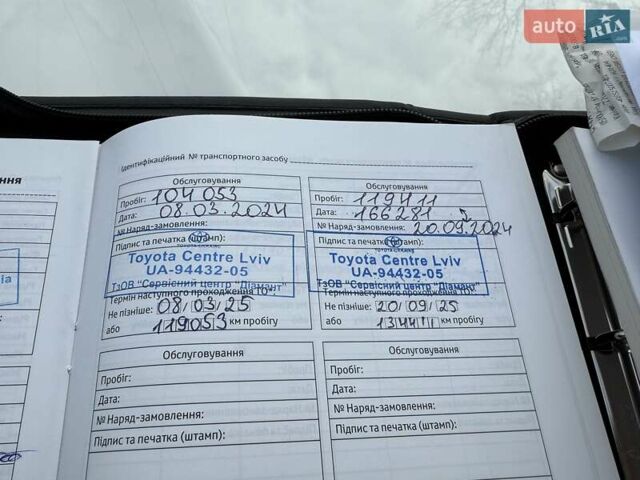 auto RIA
.com
ння
Ідентифікаційний № транспортного засобу
Обслуговування
Пробіг: 104 053
Дата: 08.03.2024
№ Наряд-замовлення:
Підпис та печатка (штамп):
Toyota Centre Lviv
UA-94432-05
ТзОВ "Сервісний центр "Діамант"
Термін наступного проходження ТО:
Не пізніше: 08/03/25
або 119053 км пробігу
Обслуговування
Пробіг: 119411
Дата: 166281
№ Наряд-замовлення: 20.09.2024
Підпис та печатка (штамп):
Toyota Centre Lviv
UA-94432-05
ТзОВ "Сервісний центр "Діамант"
Термін наступного проходження ТО:
Не пізніше: 20/09/25
або 134411 км пробігу
Обслуговування
Пробіг:
Дата:
№ Наряд-замовлення:
Підпис та печатка (штамп):
Обслуговування
Пробіг:
Дата:
№ Наряд-замовлення:
Підпис та печатка (штамп):